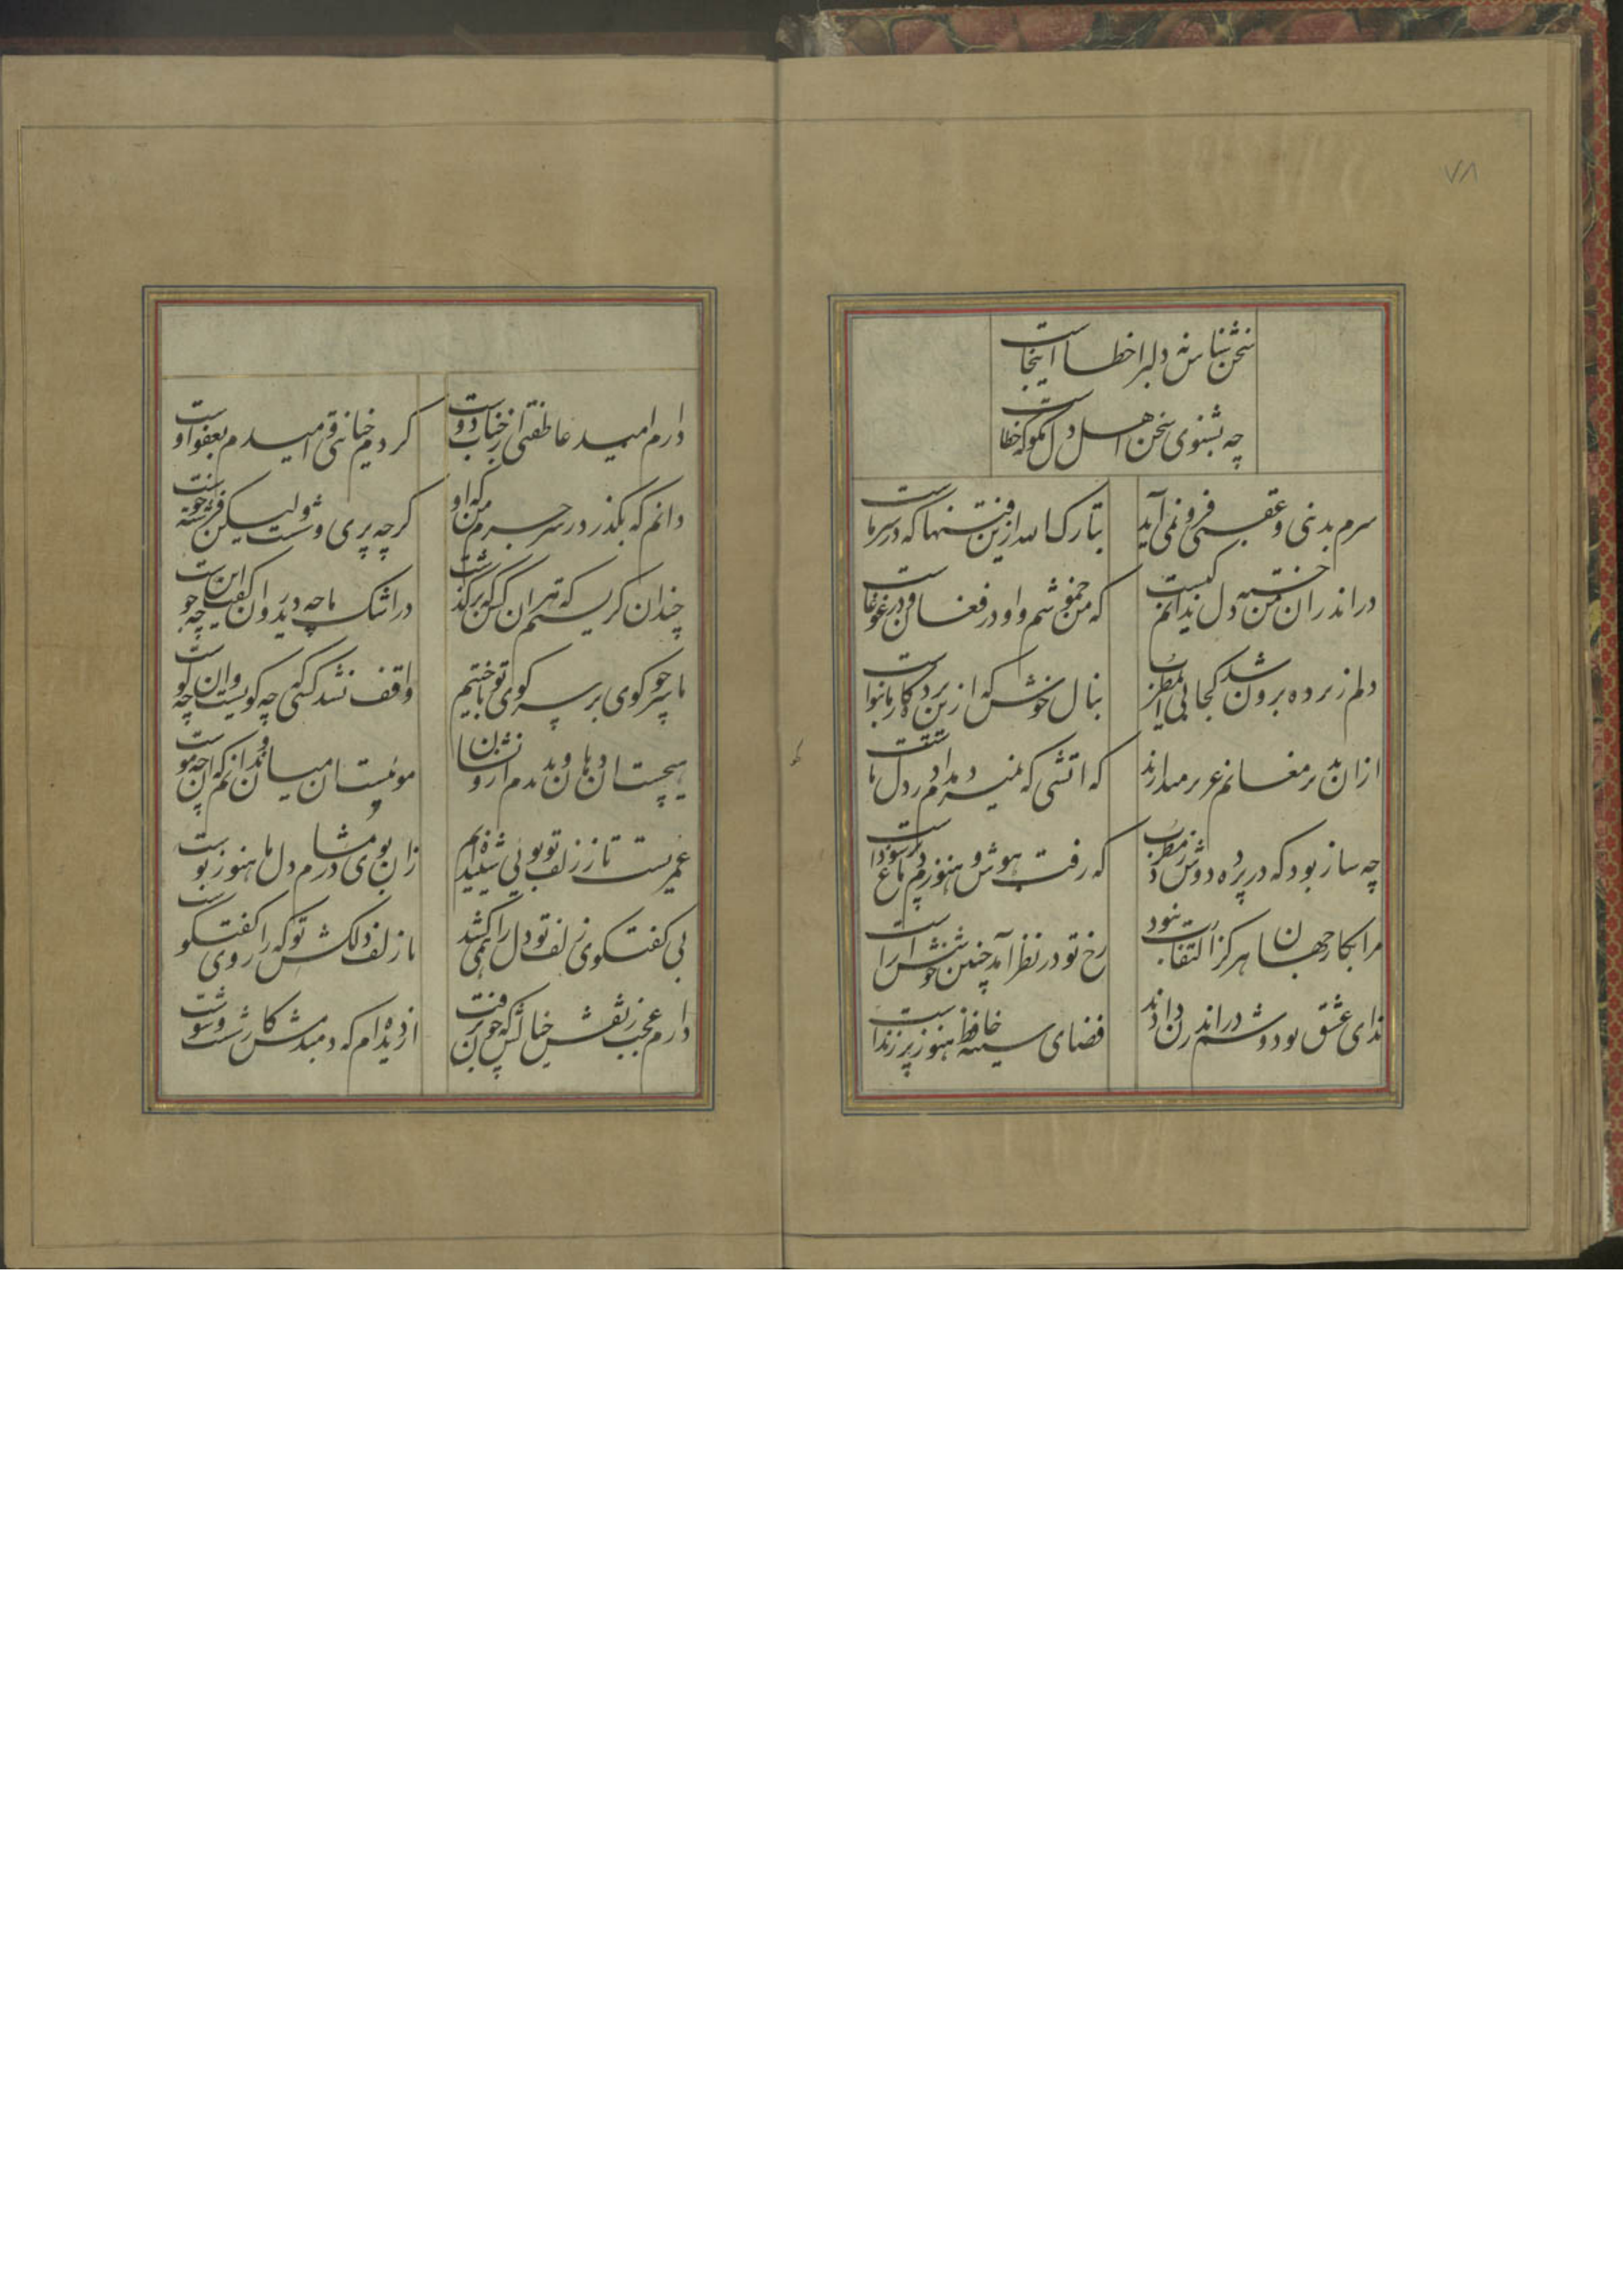 ۷۸
سخن شناس نه دلبرا خطا اینجاست
چه بشنوی سخن اهل دل مکو که خطاست
سرم بدنی و عقبی فرو نمی آید
تبارک الله ازین فتنها که در سر ماست
در اندران من خسته دل ندانم کیست
که من خموشم و او در فغان و در غوغاست
دلم ز پرده برون شد کجایی ای مطرب
بنال خوش که ازین پرده کار ما بنواست
ازان بدیر مغانم عزیز میدارند
که اتشی که نمیرد مدام در دل ماست
چه ساز بود که در پرده دوش زد مطرب
که رفت هوش و هنوزم دماغ پر سوداست
مرا بکار جهان هرگز التفات نبود
رخ تو در نظر آمد چنین خوشش آراست
ندای عشق تو دوشم در اندرون دادند
فضای سینه حافظ هنوز پر ز نداست
دارم امید عاطفتی از جناب دوست
کردم خیانتی و امیدم بعفو اوست
دانم که بگذرد ز سر جرم من که او
گرچه پری وشست ولیکن فرشته خوست
چندان گریستیم که هر کس که بر گذشت
در اشک ما چو دید روان گفت این چه جوست
ما سر چو گوی بر سر کوی تو باختیم
واقف نشد کسی که چه کویست و این چه گوست
هیچست ان دهان و ندیدم ازو نشان
مویست ان میان و ندانم که ان چه موست
عمریست تا ز زلف تو بویی شنیده ایم
زان بوی در مشام دل ما هنوز بوست
بی گفتگوی زلف تو دل را همی کشد
با زلف دلکش تو که را روی گفتگوست
دارم عجب ز نقش خیالش که چون برفت
از دیده ام که دمبدمش کار شست و شوست